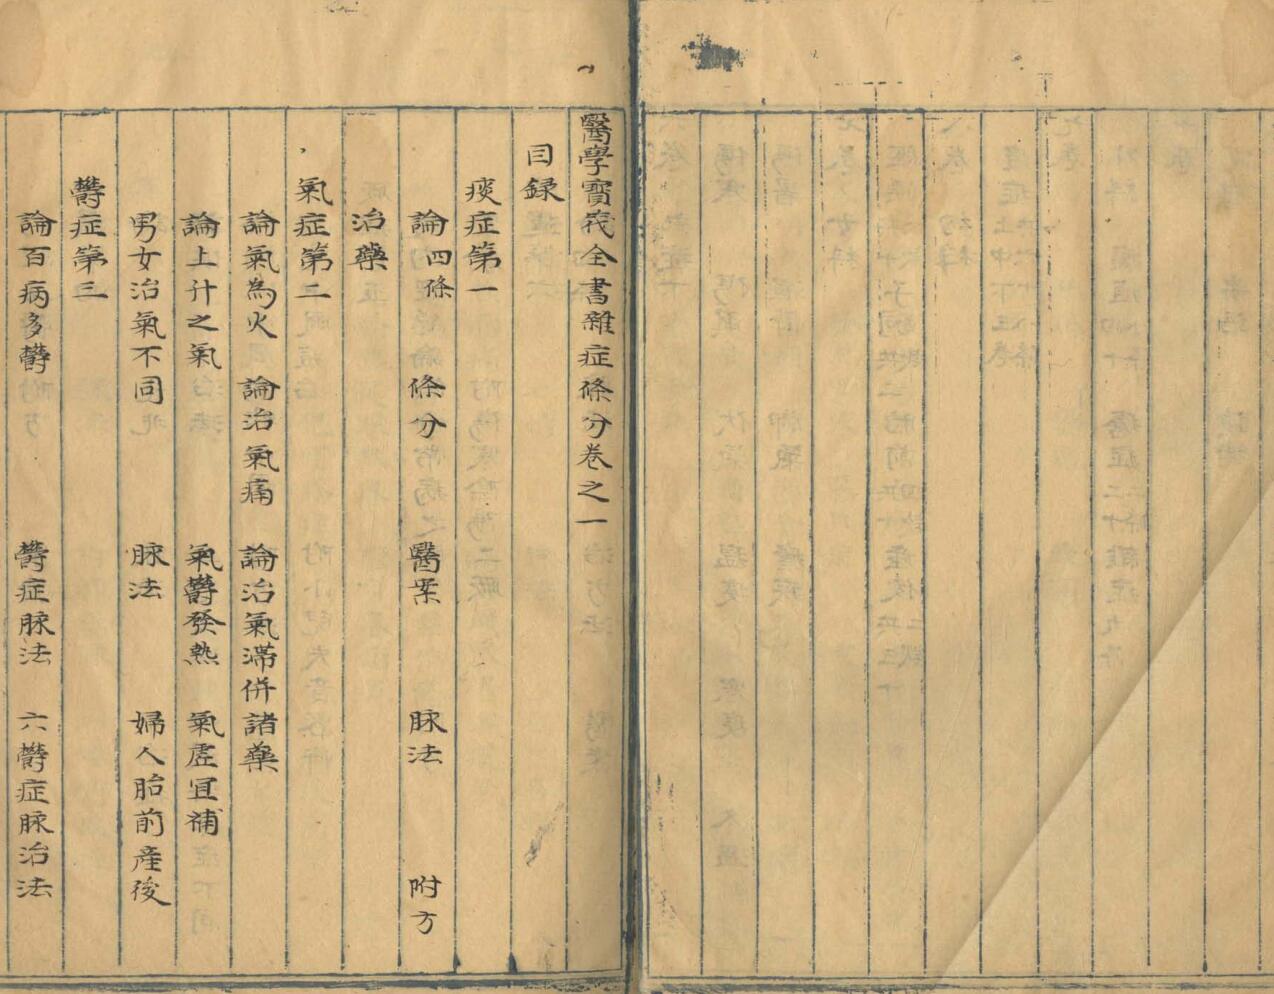 醫學寶筏全書雜症條分卷之一
目録
痰症第一
論四條 條分常病之 醫案 脉法 附方
治藥
氣症第二
論氣為火 論治氣痛 論治氣滞併諸藥
論上升之氣 氣欝發熱 氣虚宜補
男女治氣不同 脉法 婦人胎前産後
欝症第三
論百病多欝 欝症脉法 六欝症脉治法